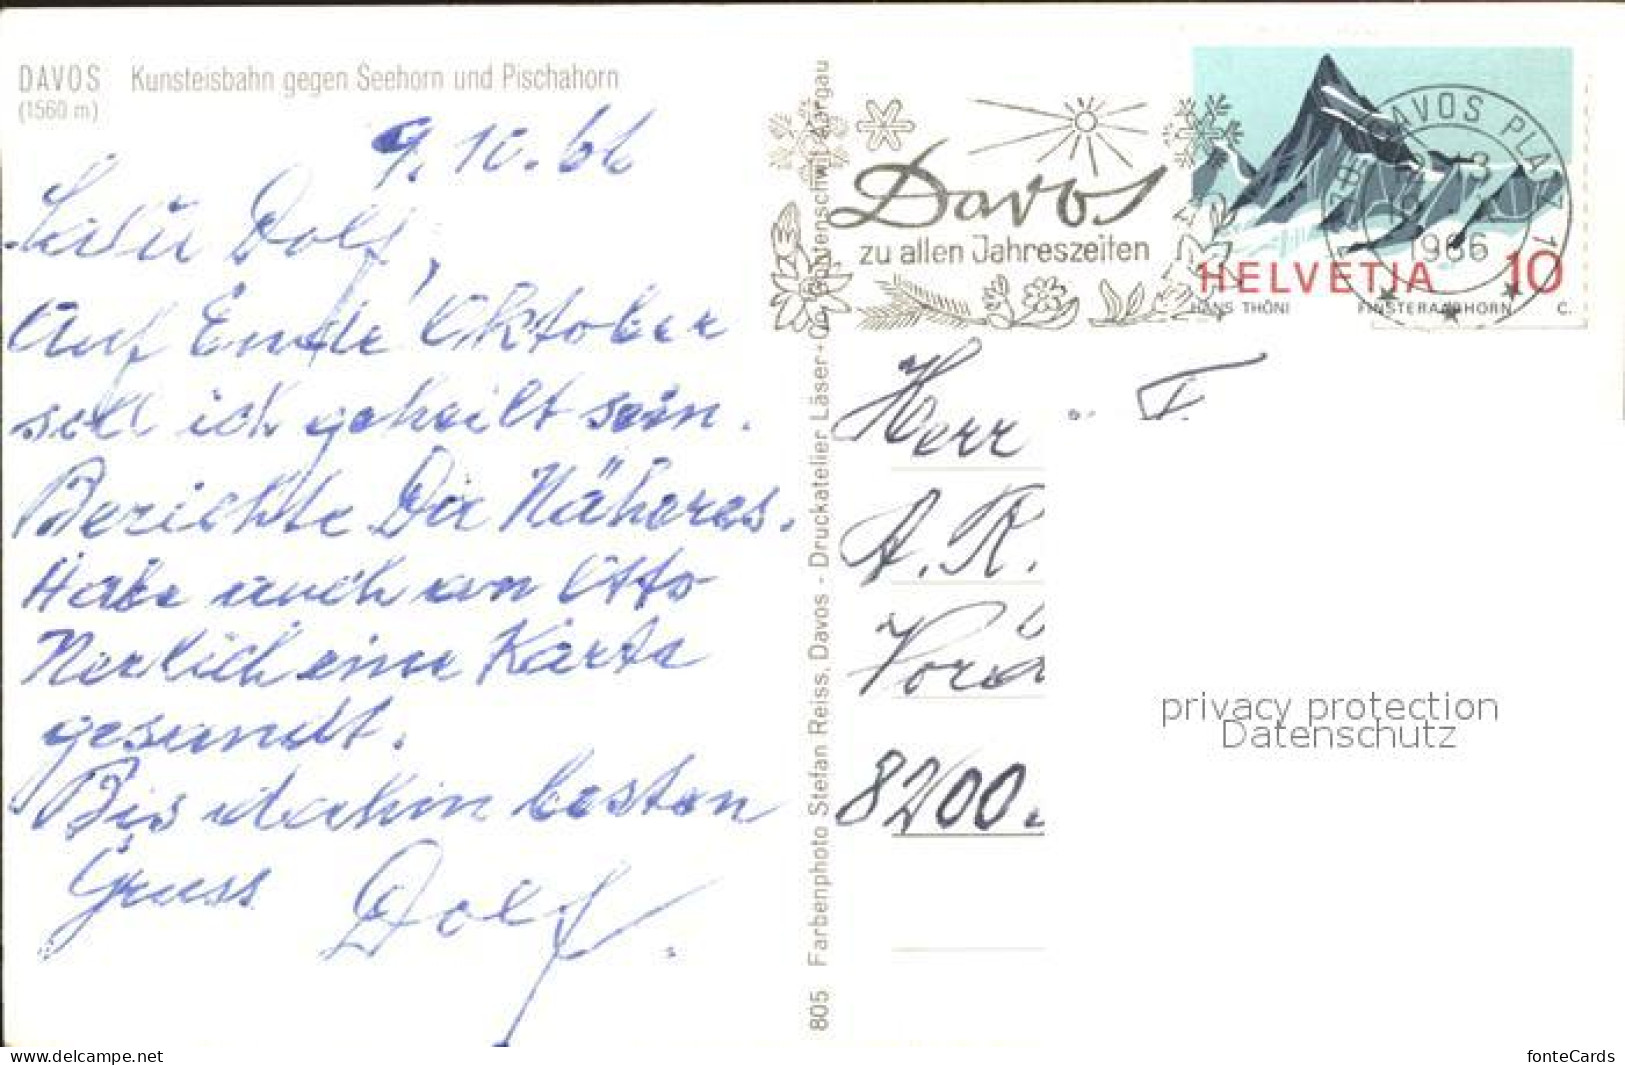 DAVOS Kunsteisbahn gegen Seehorn und Pischahorn
(1560 m)
9. 10. 66
Dolf,
Auf Ende Oktober
soll ich geheilt sein.
Berichte Dir Näheres.
Habe auch an Otto
Nerlich eine Karte
gesandt.
Bis dahin besten
Gruss Dolf.
805 Farbenphoto Stefan Reiss, Davos - Druckatelier Läser+Co. Gontenschwil Aargau
Davos
zu allen Jahreszeiten
DAVOS PLATZ
1966
HELVETIA 10
HANS THÖNI FINSTERAARHORN C.
Herr
A. K.
8200
privacy protection
Datenschutz
www.delcampe.net
fonteCards